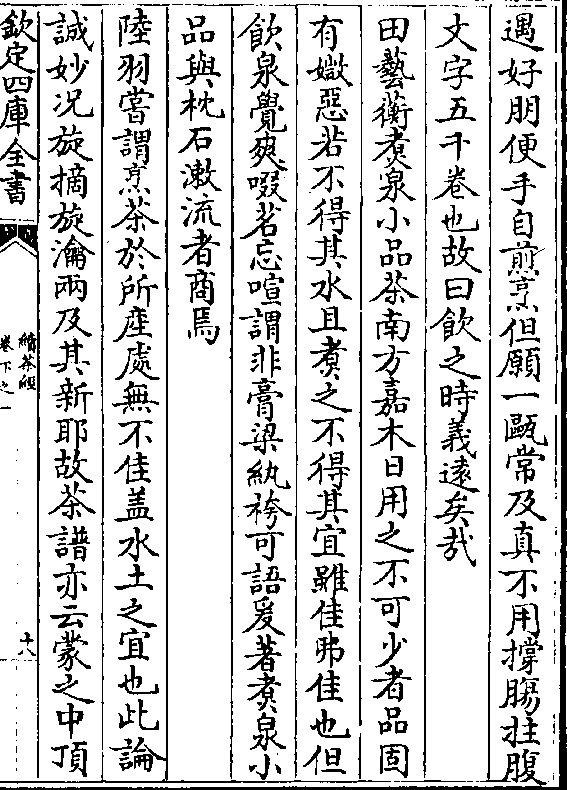 遇好朋便手自煎烹但願一甌常及真不用撐腸拄腹
文字五千卷也故曰飲之時義逺矣哉
田藝蘅煑泉小品茶南方嘉木日用之不可少者品固
有媺惡若不得其水且煑之不得其宜雖佳弗佳也但
飲泉覺爽啜茗忘喧謂非膏粱紈袴可語爰著煑泉小
品與枕石漱流者商焉
陸羽嘗謂烹茶於所産處無不佳盖水土之宜也此論
誠妙况旋摘旋瀹兩及其新耶故茶譜亦云蒙之中頂
欽定四庫全書
續茶經
卷下之一
十八